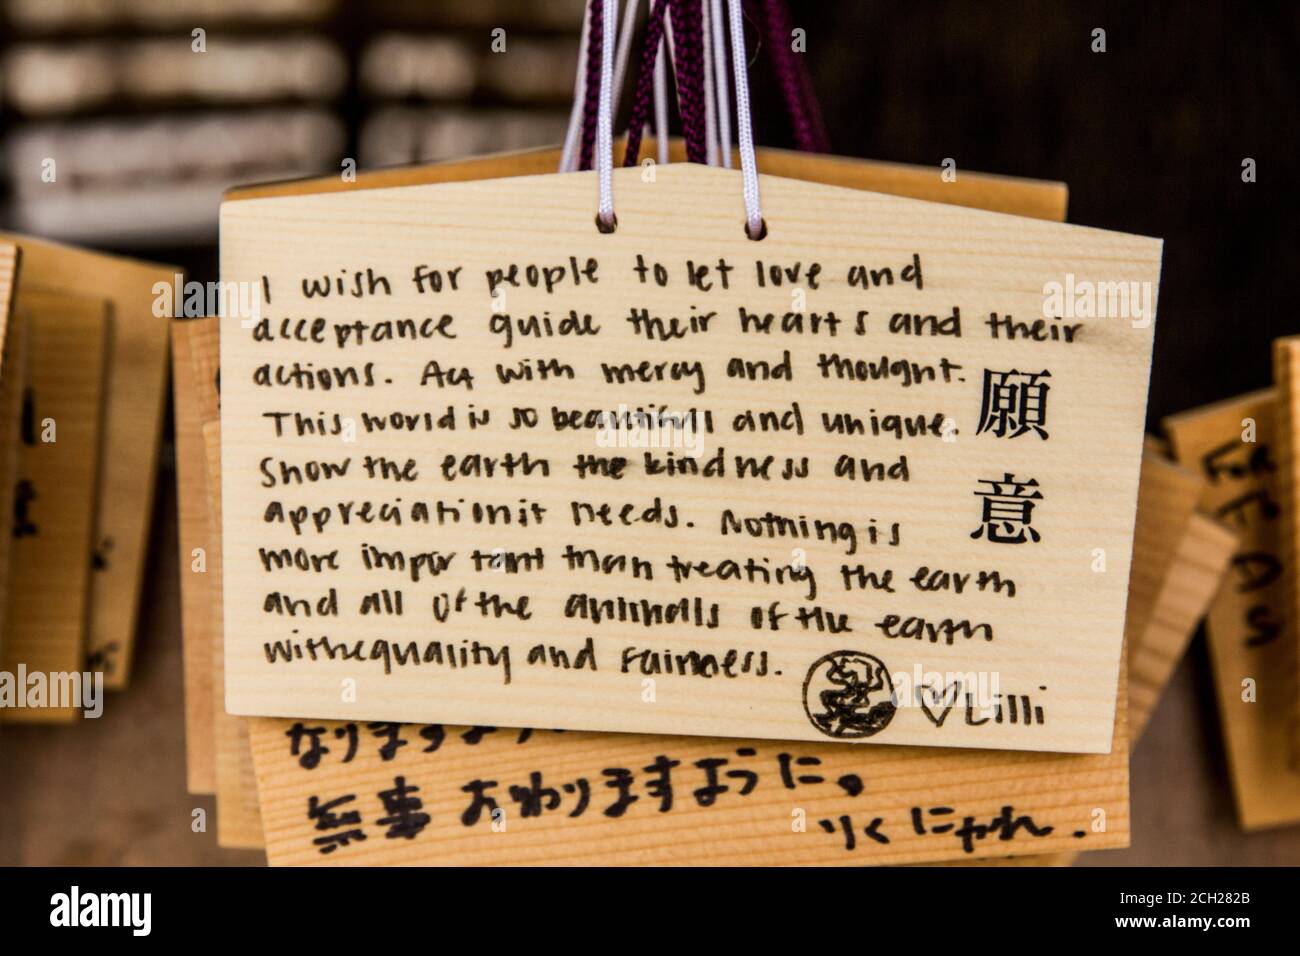 I wish for people to let love and
acceptance guide their hearts and their
actions. Act with mercy and thought.
This world is so beautifull and unique.
Show the earth the kindness and
appreciation it needs. Nothing is
more important than treating the earth
and all of the animals of the earth
with equality and fairness.
♡ Lilli
願意
なりますよう
無事おわりますように。
りくにゃれ.
alamy
Image ID: 2CH282B
www.alamy.com